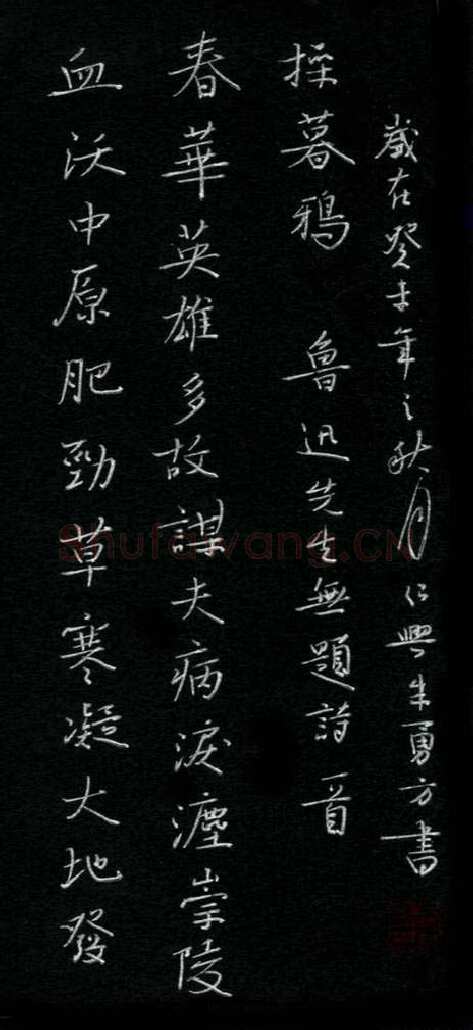 血沃中原肥勁草寒凝大地發
春華英雄多故謀夫病淚灑崇陵
噪暮鴉 魯迅先生無題詩一首
歲在癸未年之秋月仁興朱勇方書
Shufawang.CN